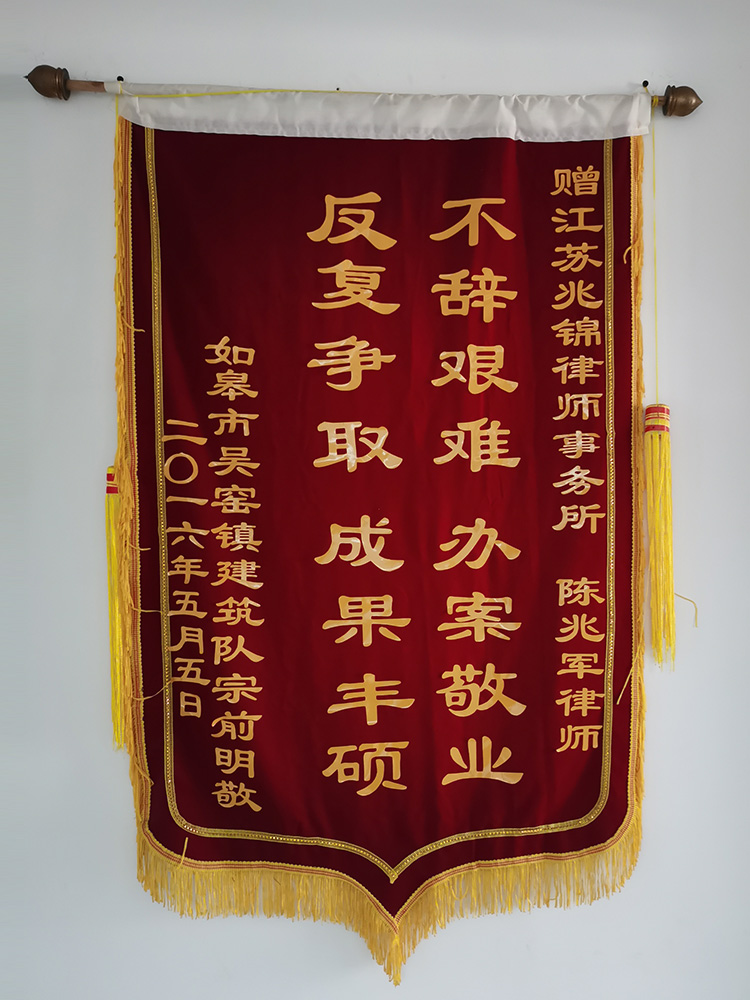 赠江苏兆锦律师事务所 陈兆军律师
不辞艰难 办案敬业
反复争取 成果丰硕
如皋市吴窑镇建筑队宗前明敬
二〇一六年五月五日